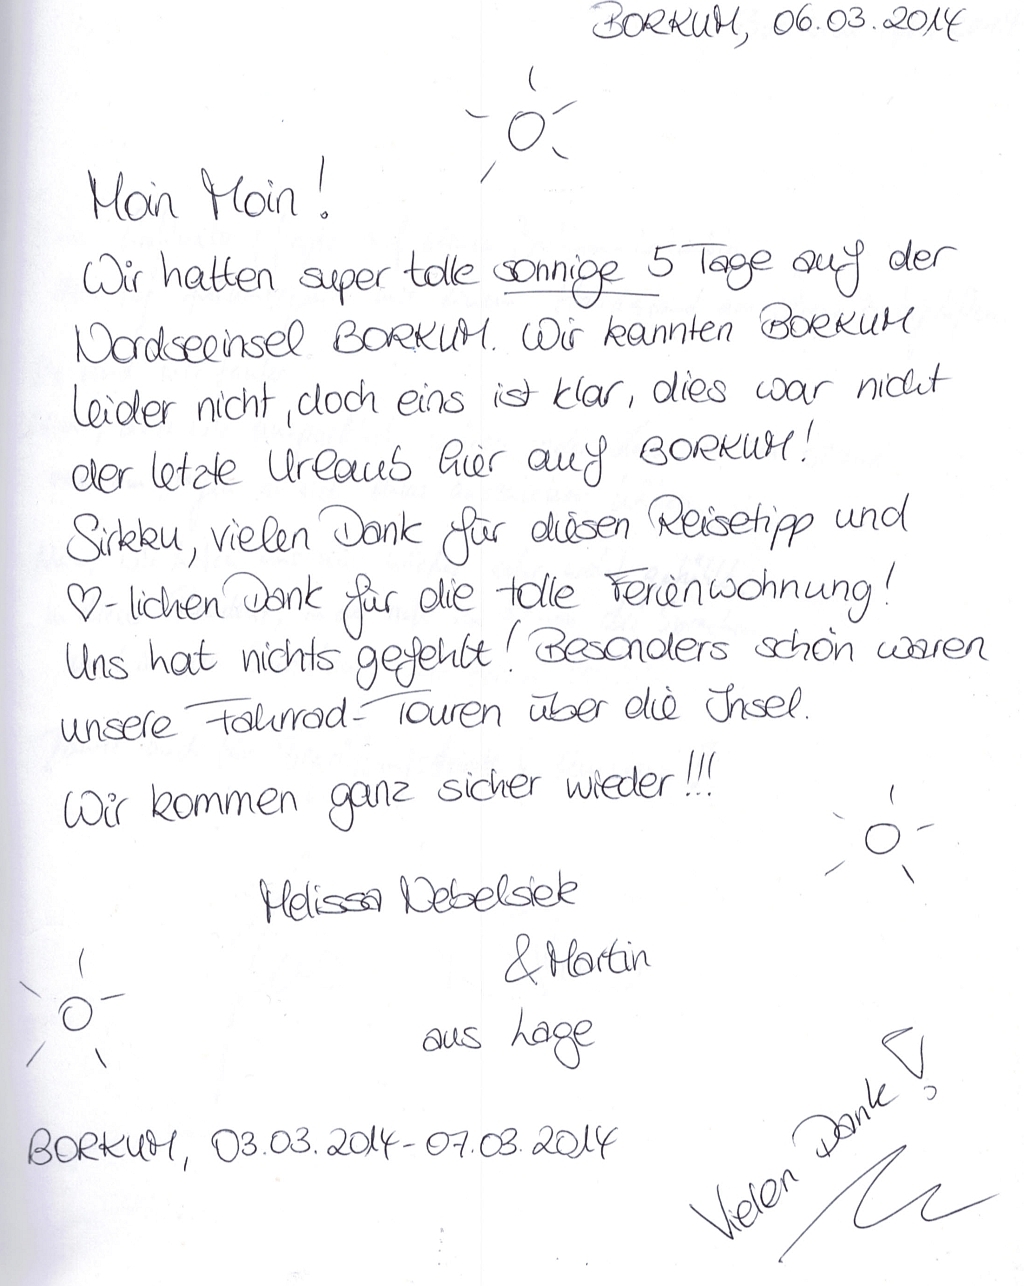 BORKUM, 06.03.2014
Moin Moin!
Wir hatten super tolle sonnige 5 Tage auf der
Nordseeinsel BORKUM. Wir kannten BORKUM
leider nicht, doch eins ist klar, dies war nicht
der letzte Urlaub hier auf BORKUM!
Sirkku, vielen Dank für diesen Reisetipp und
♡-lichen Dank für die tolle Ferienwohnung!
Uns hat nichts gefehlt! Besonders schön waren
unsere Fahrrad-Touren über die Insel.
Wir kommen ganz sicher wieder!!!
Melissa Nebelsiek
& Martin
aus Lage
BORKUM, 03.03.2014-07.03.2014
Vielen Dank!